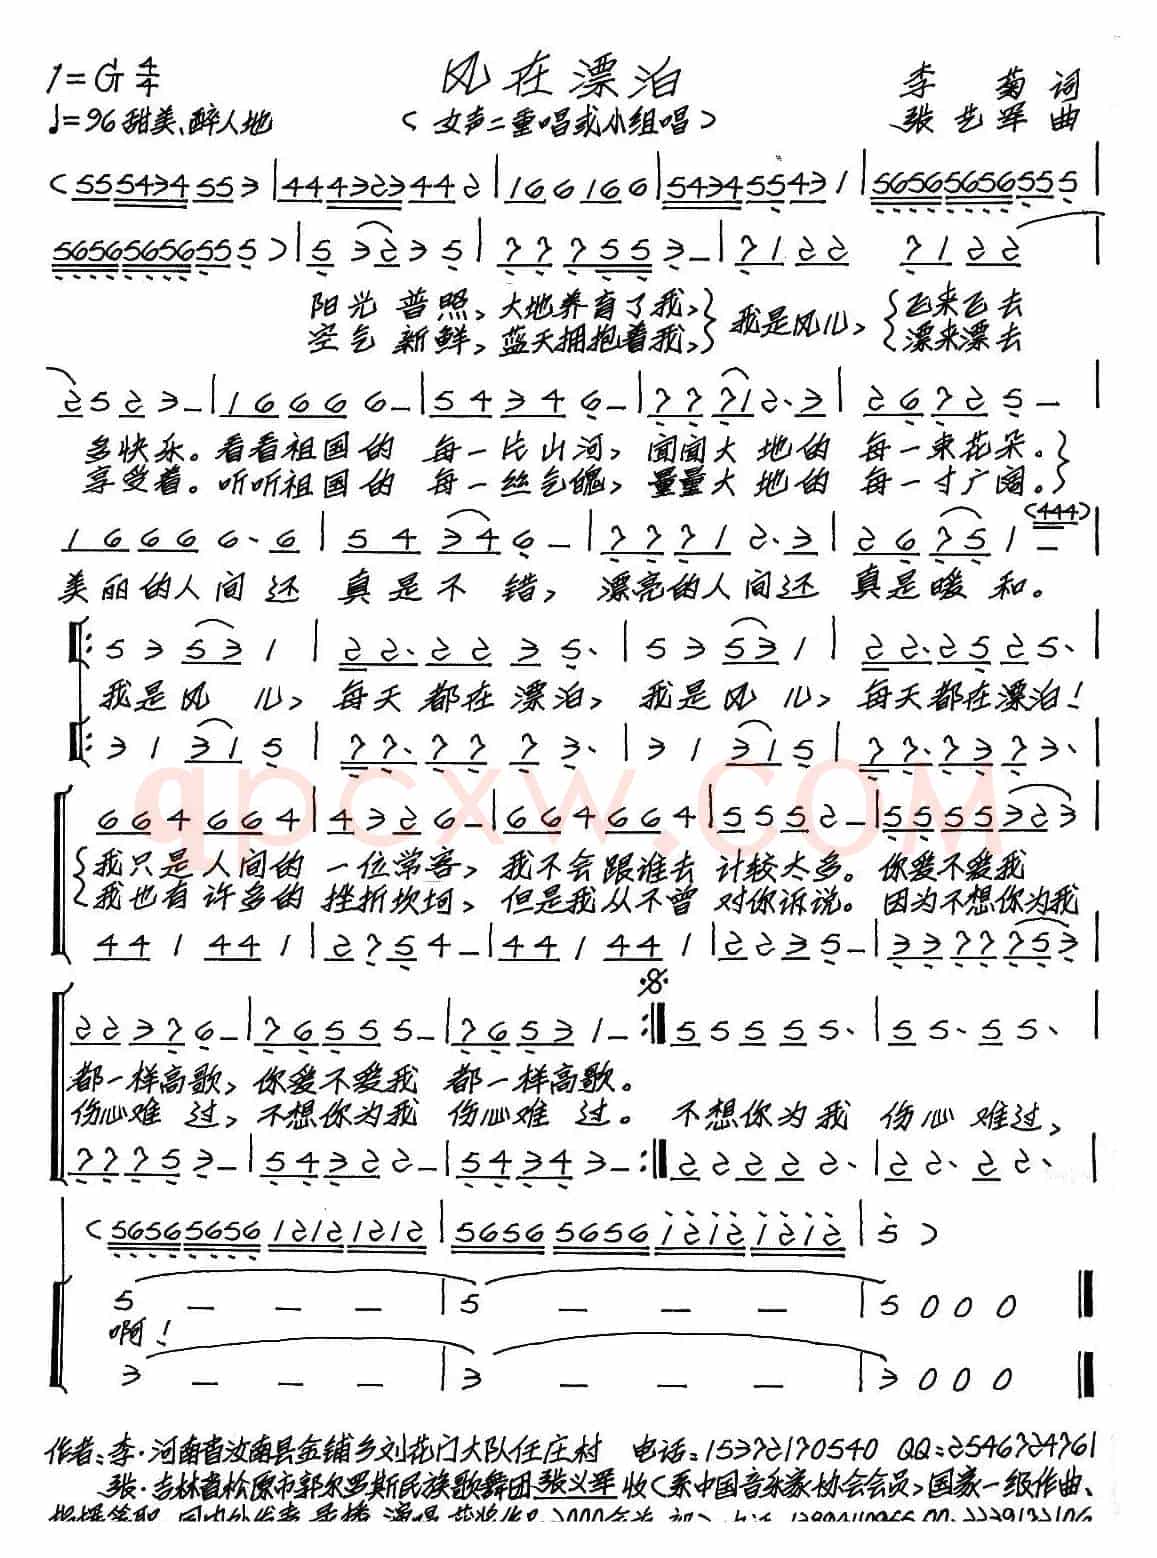 1=G 4/4 风在漂泊 李菊词
♩=96 甜美、醉人地 (女声二重唱或小组唱) 张艺军曲
(555434553|4443233442|166166|54345543 1|5656565655 5 5|
5656565655 5 5)|5 3 2 3 5|7 7 7 5 5 3 –|7 1 2 2 7 1 2 2|
阳光普照,大地养育了我,}我是风儿,{飞来飞去
空气新鲜,蓝天拥抱着我,}{漂来漂去
2 5 2 3 –|1 6 6 6 6 –|5 4 3 4 6 –|7 7 7 1 2. 3|2 6 7 2 5 –|
多快乐。看看祖国的 每一片山河,闻闻大地的 每一束花朵。}
享受着。听听祖国的 每一丝气魄,量量大地的 每一寸广阔。}
(444)
1 6 6 6 6. 6|5 4 3 4 6 –|7 7 7 1 2. 3|2 6 7 5 1 –|
美丽的人间还 真是不错,漂亮的人间还 真是暖和。
5 3 5 3 1|2 2. 2 2 3 5.|5 3 5 3 1|2 2. 2 5 2 5.|
我是风儿,每天都在漂泊,我是风儿,每天都在漂泊!
3 1 3 1 5|7 7. 7 7 7 3.|3 1 3 1 5|7 7. 7 3 7 3.|
qpcxw.com
6 6 4 6 6 4|4 3 2 6 –|6 6 4 6 6 4|5 5 5 2 –|5 5 5 5 3 2 3|
{我只是人间的 一位常客,我不会跟谁去 计较太多。你爱不爱我
{我也有许多的 挫折坎坷,但是我从不曾 对你诉说。因为不想你为我
4 4 1 4 4 1|2 7 5 4 –|4 4 1 4 4 1|2 2 3 5 –|3 3 7 7 7 5 3|
2 2 3 7 6 –|7 6 5 5 5 –|7 6 5 3 1 –:‖5 5 5 5 5.|5 5. 5 5.|
都一样高歌,你爱不爱我 都一样高歌。
伤心难过,不想你为我 伤心难过。不想你为我 伤心难过,
7 7 7 5 3 –|5 4 3 2 2 –|5 4 3 4 3 –:‖2 2 2 2 2.|2 2. 2 2.|
(5656 5656 1212 1212|5656 5656 1212 1212|5)
5 – – –|5 – – –|5 0 0 0‖
啊!
3 – – –|3 – – –|3 0 0 0‖
作者:李·河南省汝南县金铺乡刘花门大队任庄村 电话:15372170540 QQ:2546724761
张·吉林省松原市郭尔罗斯民族歌舞团张义军收(系中国音乐家协会会员)国家一级作曲、